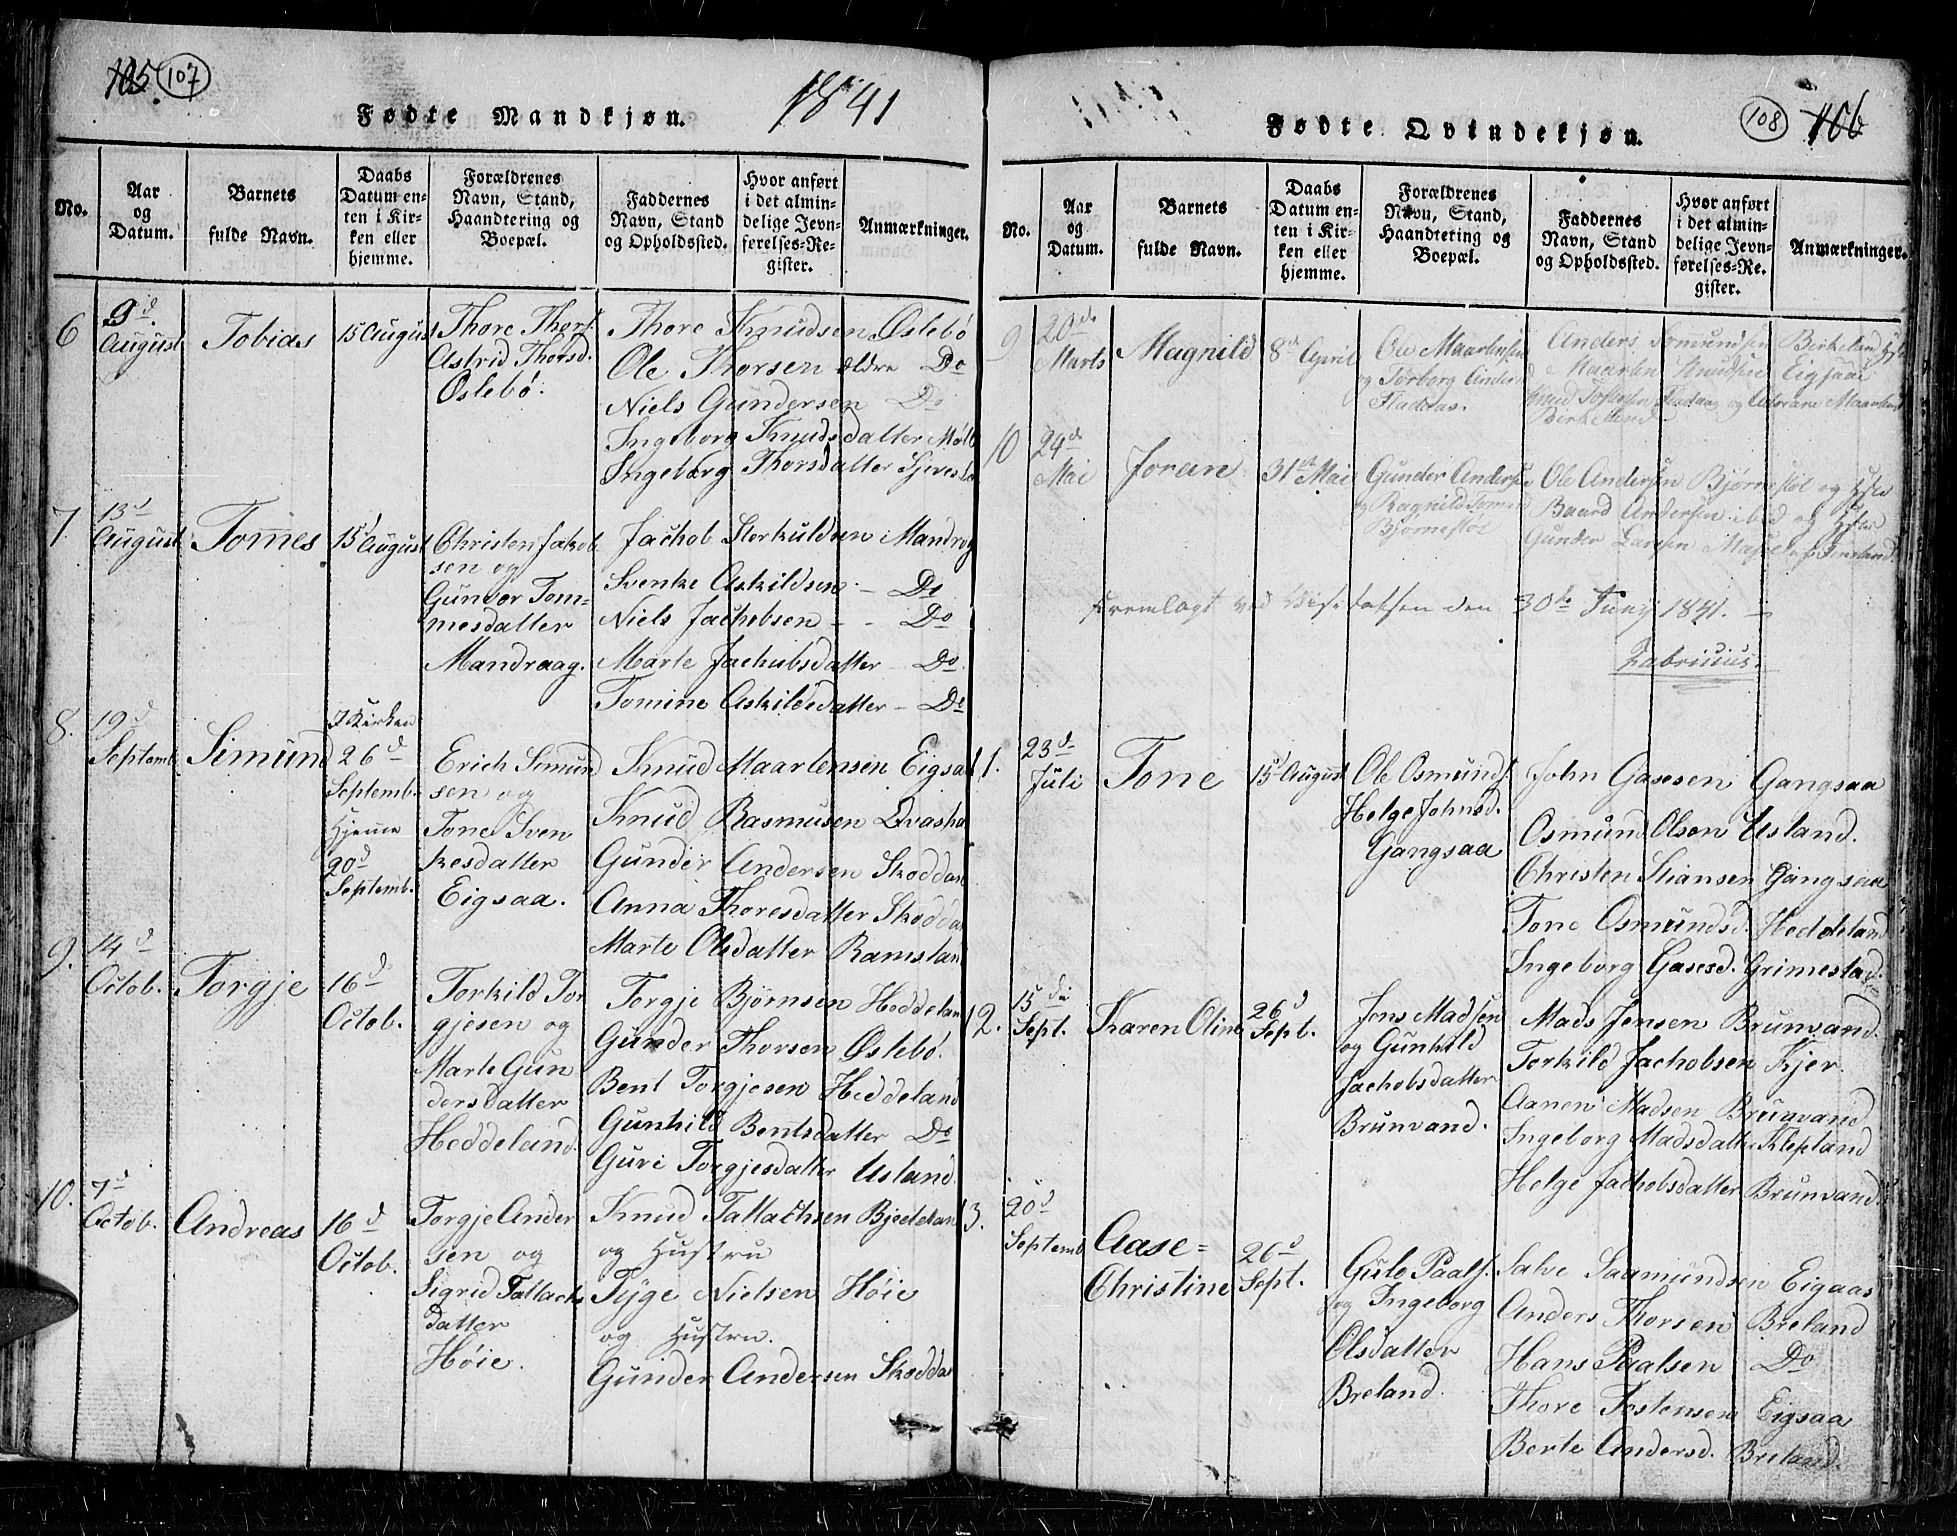 105. 107
Fødte Mandkjøn. 1841
No.
Aar og Datum.
Barnets fulde Navn.
Daabs Datum enten i Kirken eller hjemme.
Forældrenes Navn, Stand, Haandtering og Boepæl.
Faddernes Navn, Stand og Opholdssted.
Hvor anført i det almindelige Jevnførelses-Register.
Anmærkninger.
6 9d. August Tobias 15 August
Thore Thors.
Astrid Thorsd.
Oslebö.
Thore Knudsen Oslebö
Ole Thorsen ældre Do
Niels Gundersen Do
Ingeborg Knudsdatter
Ingeborg Thorsdatter
7. 13d August Tomes 15 August
Christen Jakob
sen og
Gunvor Tom=
mesdatter
Mandraag.
Jachob Mandrag
Svenke Askildsen - Do
Niels Jachobsen - - Do
Marte Jachobsdatter - Do.
Tomine Askildsdatter - Do
8. 19d Septemb. Simund
I Kirken
26d
Septemb.
Hjemme
20d
Septemb.
Erich Simund
sen og
Tone Sven
kesdatter
Eigsaa.
Knud Maartensen Eigsaa
Knud Rasmusen
Gunder Andersen
Anna Thoresdatter
Marte Olsdatter
9. 14d Octob. Torgje 16d Octob.
Torkild Tor
gjesen og
Marte Gun
dersdatter
Heddeland.
Torgje Björnsen
Gunder Thorsen Oslebö.
Bent Torgjesen Heddeland
Gunhild Bentsdatter Do
Guri Torgjesdatter Usland.
10. 7d Octob. Andreas 16d Octob.
Torgje Ander
sen og
Sigrid Tallachs
datter
Höie.
Knud Tallachsen
og Hustru
Tÿge Nielsen Höie
og Hustru.
Gunder Andersen
108 106
Fødte Qvindekjøn.
No.
Aar og Datum.
Barnets fulde Navn.
Daabs Datum enten i Kirken eller hjemme.
Forældrenes Navn, Stand, Haandtering og Boepæl.
Faddernes Navn, Stand og Opholdssted.
Hvor anført i det almindelige Jevnførelses-Register.
Anmærkninger.
9 20de Marts Magnild 8d April
Ole Maartensen
og Torborg
Anders
Maarten Knudsen Eigsaae
Birkeland
10 24d Mai Joran 31d Mai
Gunder Andersen
og Ragnild
Björnestöl
Ole Andersen Björnestöl og
Baard Andersen ibid og
Gunder Larsen
Fremlagt ved Visitatsen den 30te Junÿ 1841.
Fabricius.
11. 23d Juli Tone 15 August
Ole Osmunds.
Helge Johnsd.
Gangsaa
John Gasesen Gangsaa
Osmund Olsen Usland.
Christen Stiansen Gangsaa
Tone Osmundsd. Heddeland
Ingeborg Gasesd. Grimestad.
12. 15de Sept. Karen Oline 26d Sept.
Jens Madsen
og Gunhild
Jachobsdatter
Brunvand.
Mads Jensen Brunvand.
Torkild Jachobsen Kjer.
Aanen Madsen Brunvand
Ingeborg Madsdatter Klepland
Helge Jachobsdatter Brunvand.
13. 20d Septemb. Aase=
Christine 26d Sept.
Gule Paals.
og Ingeborg
Olsdatter
Breland.
Salve Saamundsen Eigaas
Anders Thorsen Breland
Hans Paalsen Do
Thore Tostensen Eigsaa
Berte Andersd. Breland.